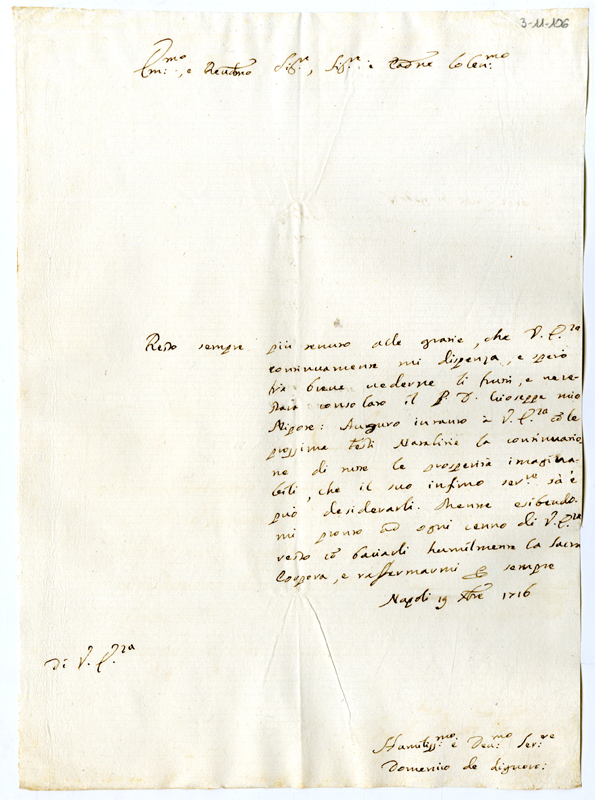 3-11-106
Em:mo, e Reudmo Sig:re, Sig:re e Padne Colen:mo
Resto sempre più tenuto alle grazie, che V. E.za
continuamente mi dispenza, e spero
trà breve uederne li frutti, e ne re-
starà consolato il P. D. Gioseppe mio
Nipote: Auguro intanto à V. E.za cō le
prossime feste Natalitie la continuatio
ne di tutte le prosperità imagina-
bili, che il suo infimo ser:re sà e
può desiderarli. Mentre esibendo-
mi pronto ad ogni cenno di V. E.za
resto cō baciarli humilmente la Sacra
Porpora, e raffermarmi P sempre
Napoli 19 Xbre 1716
Di V. E.za
Humiliss:mo e Deu:mo Ser:re
Domenico de